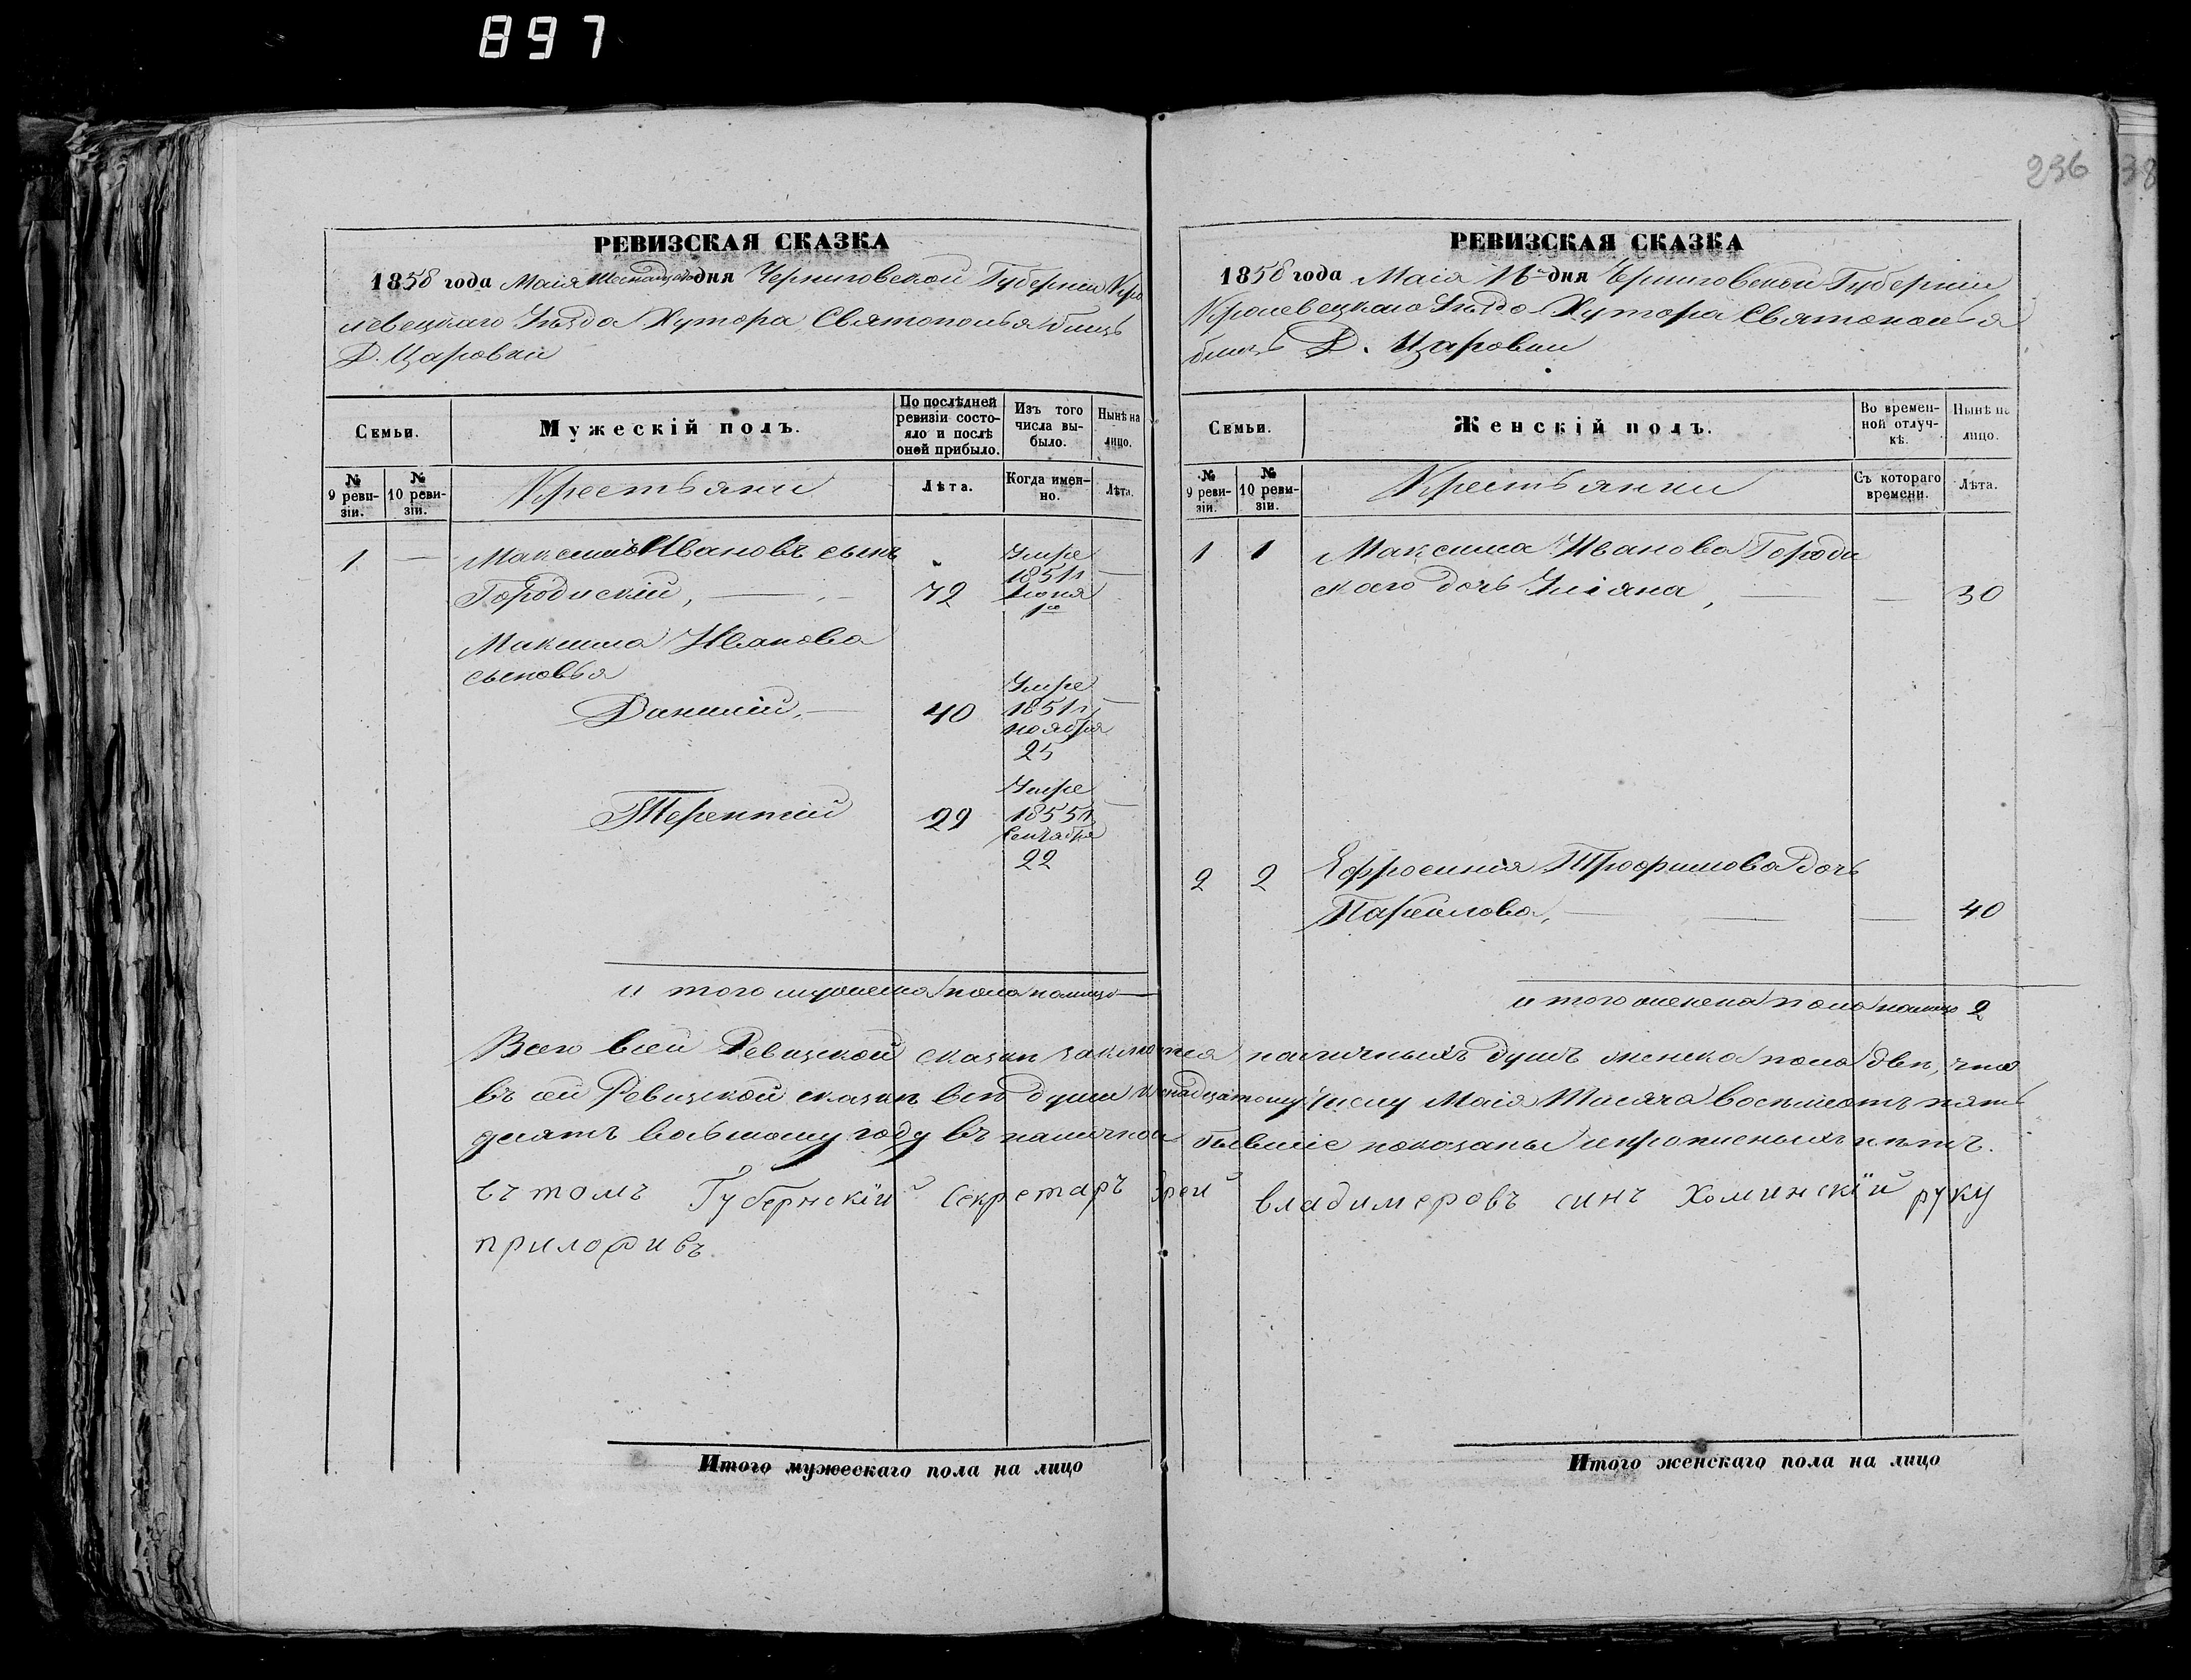 897
296
38
РЕВИЗСКАЯ СКАЗКА
1858 года Маія Шеснадцатого дня Черниговской Губерніи Кро
левецкаго Уѣзда Хутора Святополья близъ
Д. Царовки
Семьи.
Мужескій полъ.
По послѣдней ревизіи состояло и послѣ оной прибыло.
Изъ того числа выбыло.
Нынѣ на лицо.
№ 9 ревизіи.
№ 10 ревизіи.
Крестьяни
Лѣта.
Когда именно.
Лѣта.
1 — Максимъ Ивановъ сынъ
Городискій, — 72 Умре 1851 г Июня 1го —
Максима Иванова
сыновья
Даниилъ, — 40 Умре 1851 г ноября 25 —
Терентій 29 Умре 1855 г Сентября 22 —
и того мужеска пола налицо —
РЕВИЗСКАЯ СКАЗКА
1858 года Маія 16 дня Черниговской Губерніи
Кролевецкаго Уѣзда Хутора Святополья
близъ Д. Царовки
Семьи.
Женскій полъ.
Во временной отлучкѣ.
Нынѣ на лицо.
№ 9 ревизіи.
№ 10 ревизіи.
Крестьянки
Съ котораго времени.
Лѣта.
1 1 Максима Иванова Городи
скаго дочь Уліяна, — — 30
2 2 Ефросинія Трофимова дочь
— — 40
и того женска пола налицо 2
Всего въ сей Ревизской сказки заключается наличныхъ душъ женска пола двѣ, что
въ сей Ревизской сказкѣ всѣ души шеснадцатому числу Маія Тисяча восемьсотъ пять
десятъ восьмому году въ наличности бывшіе показаны и прописныхъ нѣтъ.
въ томъ Губернскій Секретаръ владимеровъ синъ Хоминскій руку
приложивъ
Итого мужескаго пола на лицо
Итого женскаго пола на лицо